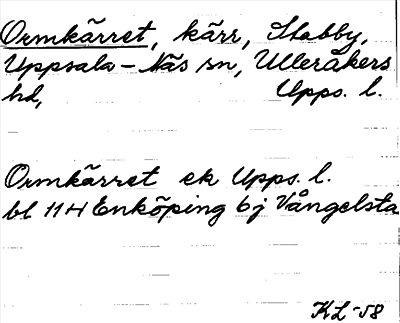 Ormkärret, kärr, Stabby,
Uppsala-Näs sn, Ulleråkers
hd, Upps. l.
Ormkärret ek Upps. l.
bl 11H Enköping 6j Vångelsta
KL-58